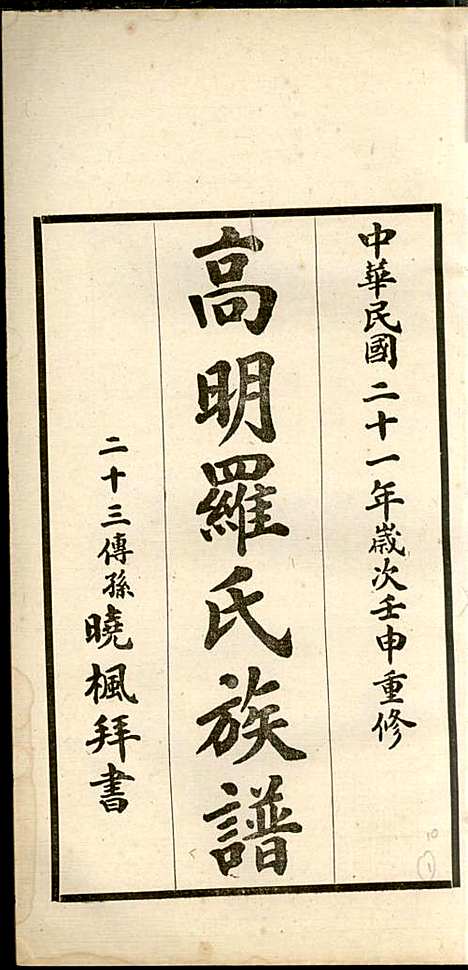 中華民國二十一年歲次壬申重修
高明羅氏族譜
二十三傳孫曉楓拜書
10
1